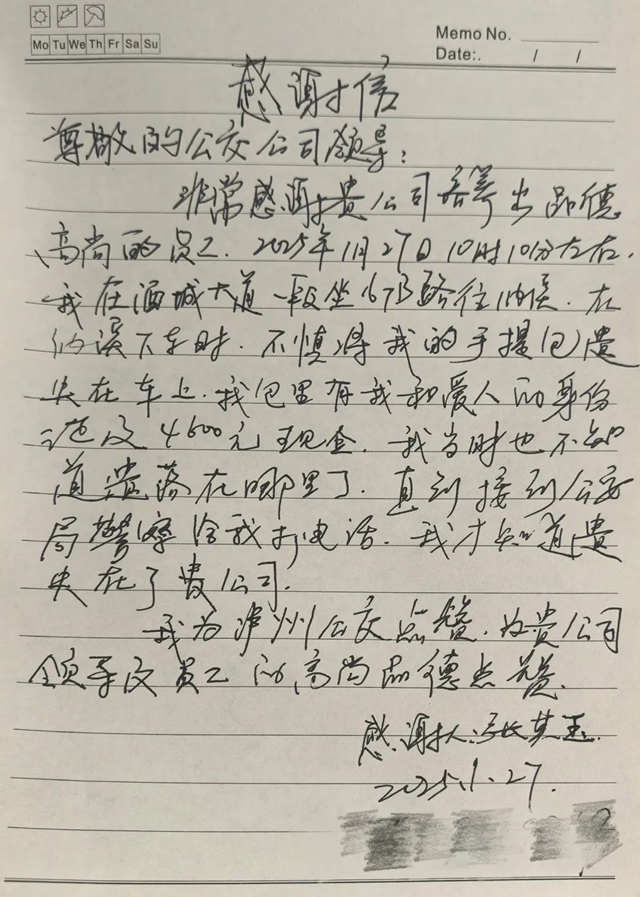 Mo Tu We Th Fr Sa Su
Memo No.
Date:. / /
感谢信
尊敬的公交公司领导:
非常感谢贵公司培养出品德
高尚的员工. 2025年1月27日10时10分左右.
我在酒城大道一段坐67B路往纳溪. 在
纳溪下车时. 不慎将我的手提包遗
失在车上. 我包里有我和爱人的身份
证及4600元现金. 我当时也不知
道遗落在哪里了. 直到接到公安
局警察给我打电话. 我才知道遗
失在了贵公司.
我为泸州公交点赞. 为贵公司
领导及员工的高尚品德点赞.
感谢人: 张其玉.
2025.1.27.